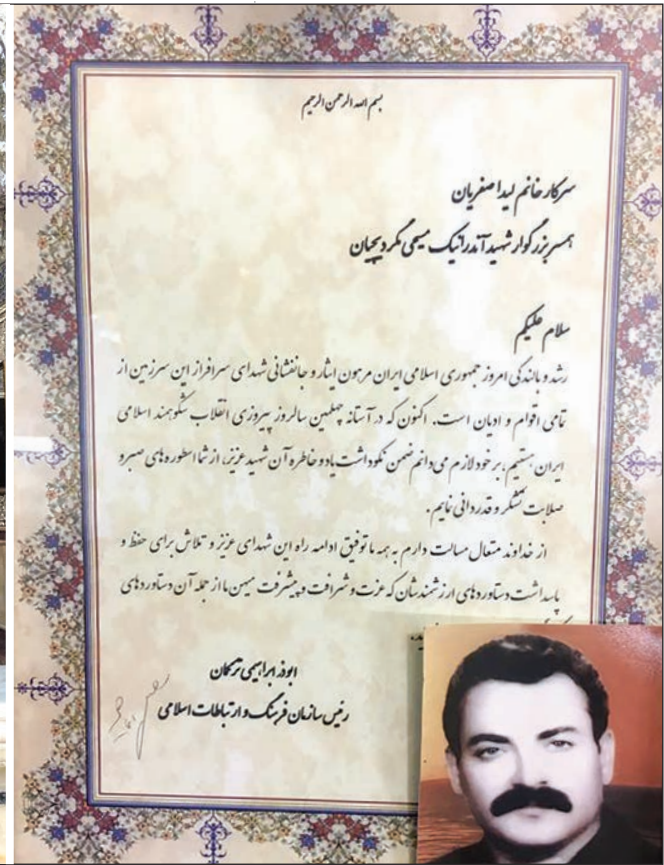 بسم الله الرحمن الرحیم
سرکار خانم لیدا صفریان
همسر بزرگوار شهید آندرانیک مسیحی مگردیچیان
سلام علیکم
رشد و بالندگی امروز جمهوری اسلامی ایران مرهون ایثار و جانفشانی شهدای سرافراز این سرزمین از
تمامی اقوام و ادیان است. اکنون که در آستانه چهلمین سالروز پیروزی انقلاب شکوهمند اسلامی
ایران هستیم، بر خود لازم می‌دانم ضمن نکوداشت یاد و خاطره آن شهید عزیز، از شما اسطوره‌های صبر و
صلابت تشکر و قدردانی نمایم.
از خداوند متعال مسالت دارم به همه ما توفیق ادامه راه این شهدای عزیز و تلاش برای حفظ و
پاسداشت دستاوردهای ارزشمندشان که عزت و شرافت و پیشرفت میهن ما از جمله آن دستاوردهای
ابوذر ابراهیمی ترکمان
رئیس سازمان فرهنگ و ارتباطات اسلامی